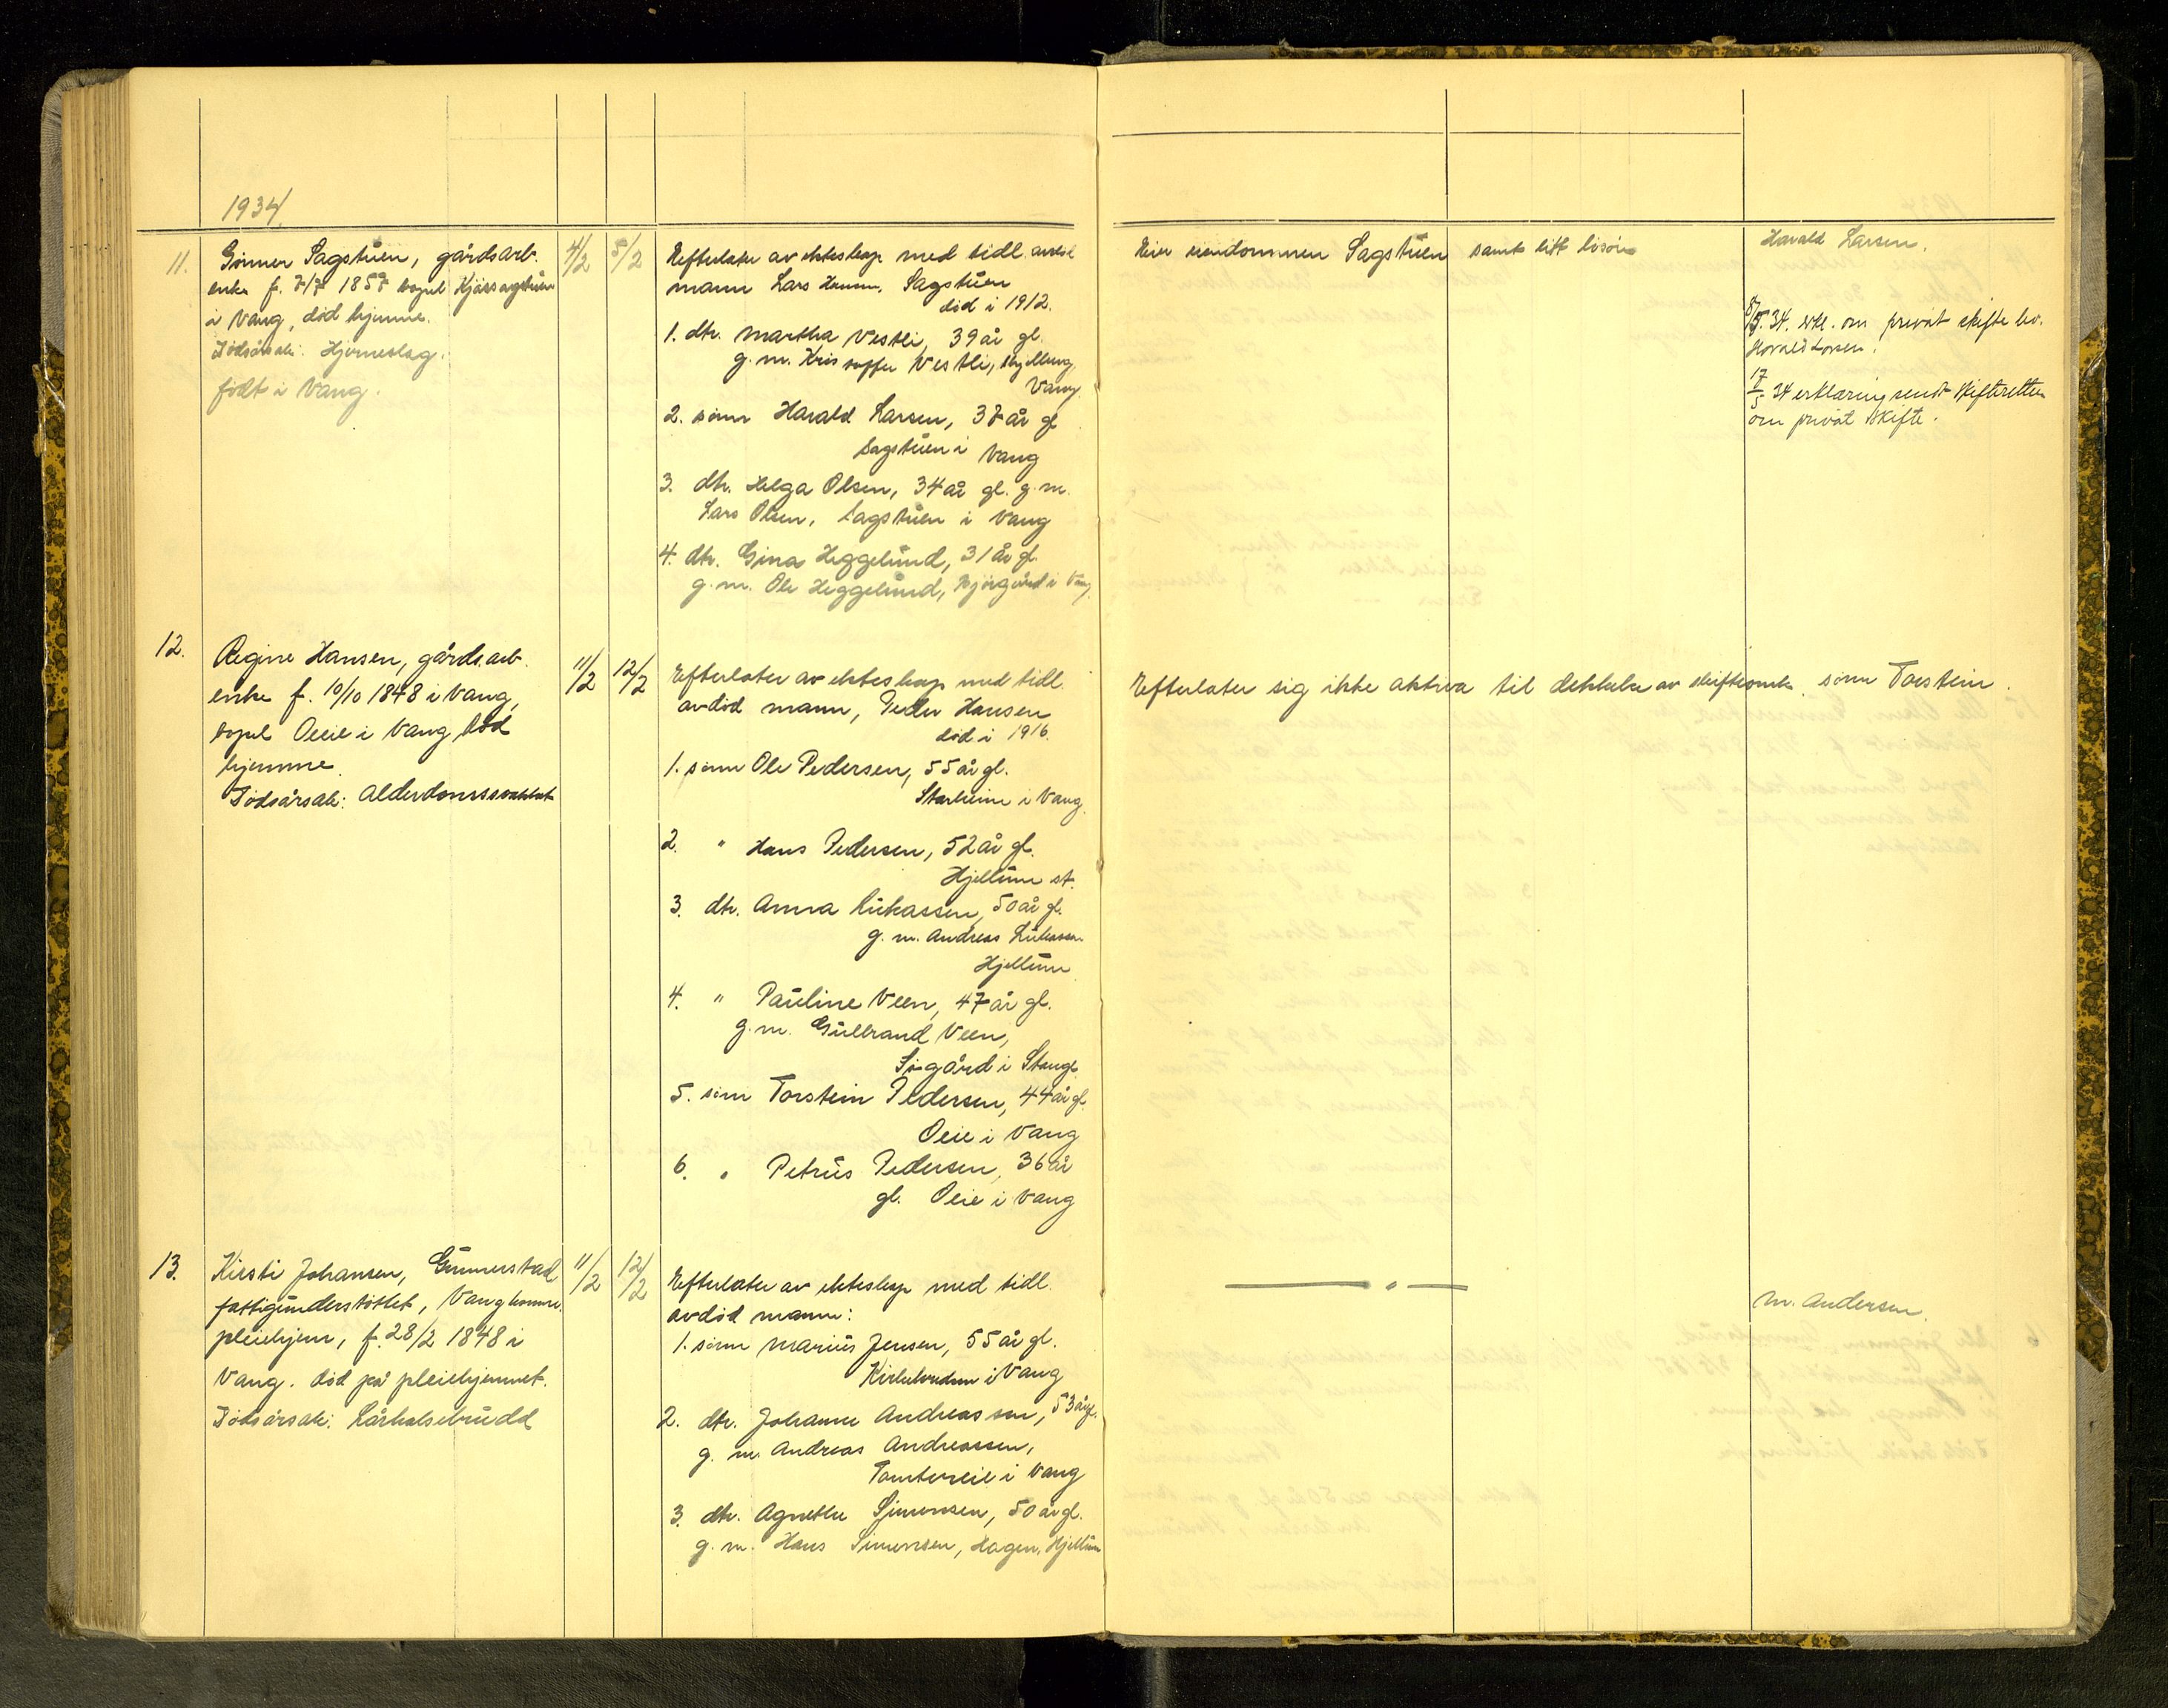 1934
11. Gunner Sagstuen, gårdsarb.
enke f. 7/7 1857 bopel
i Vang, död hjemme.
Dödsårsak: Hjerneslag.
födt i Vang.
4/2 5/2
Efterlater av ekteskap med tidl. avdöd
mann Lars Hansen, Sagstuen
död i 1912.
1. dtr. Martha Vestli, 39 år gl.
g. m. Kristoffer Vestli,
Vang
2. sönn Harald Larsen, 37 år gl
Sagstuen i Vang
3. dtr. Helga Olsen, 34 år gl. g. m.
Lars Olsen, Sagstuen i Vang
4. dtr. Gina Heggelund, 31 år gl.
g. m. Ole Heggelund, Bjørgård i Vang.
Eier eiendommen Sagstuen samt litt lösöre
Harald Larsen.
8/5. 34. erkl. om privat skifte lev.
Harald Larsen.
17/5 34 erklæring sendt skifteretten
om privat skifte.
12. Regine Hansen, gårdsarb.
enke f. 10/10 1848 i Vang,
bopel Oeie i Vang, död
hjemme.
Dödsårsak: Alderdomssvakhet
11/2 12/2
Efterlater av ekteskap med tidl.
avdöd mann, Peder Hansen
död i 1916.
1. sönn Ole Pedersen, 55 år gl.
i Vang.
2. " Hans Pedersen, 52 år gl.
Hjellum st.
3. dtr. Anna Lukassen, 50 år gl.
g. m. Andreas Lukassen
Hjellum
4. " Pauline Veen, 47 år gl.
g. m. Gulbrand Veen,
Sögård i Stange
5. sönn Torstein Pedersen, 44 år gl.
Oeie i Vang
6. " Petrus Pedersen, 36 år
gl. Oeie i Vang
Efterlater sig ikke aktiva til dekkelse av skifteomk. sönn Torstein.
13. Kirsti Johansen, Gunnerstad
fattigunderstöttet, Vang komm.
pleiehjem, f. 28/2 1848 i
Vang. död på pleiehjemmet.
Dödsårsak: Lårhalsbrudd
11/2 12/2
Efterlater av ekteskap med tidl.
avdöd mann:
1. sönn Marius Jensen, 55 år gl.
i Vang
2. dtr. Johanne Andreassen, 53 år gl.
g. m. Andreas Andreassen,
Tomtereie i Vang
3. dtr. Agnethe Simensen, 50 år gl.
g. m. Hans Simensen, Hagen, Hjellum
— " —
M. Andersen.